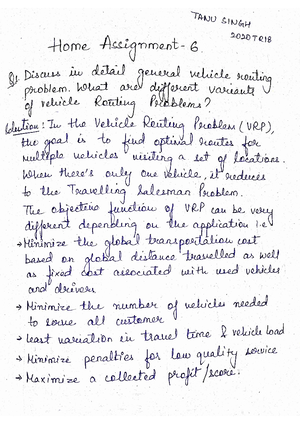 TANU SINGH
2020TR18
Home Assignment-6.
Q1 Discuss in detail general vehicle routing
problem. What are different variants
of vehicle Routing Problems?
Solution: In the Vehicle Routing Problem (VRP),
the goal is to find optimal routes for
multiple vehicles visiting a set of locations.
When there's only one vehicle, it reduces
to the Travelling Salesman Problem.
The objective function of VRP can be very
different depending on the application i.e
→ Minimize the global transportation cost
based on global distance travelled as well
as fixed cost associated with used vehicles
and drivers
→ Minimize the number of vehicles needed
to serve all customer
→ least variation in travel time & vehicle load
→ Minimize penalties for low quality service
→ Maximize a collected profit/score.